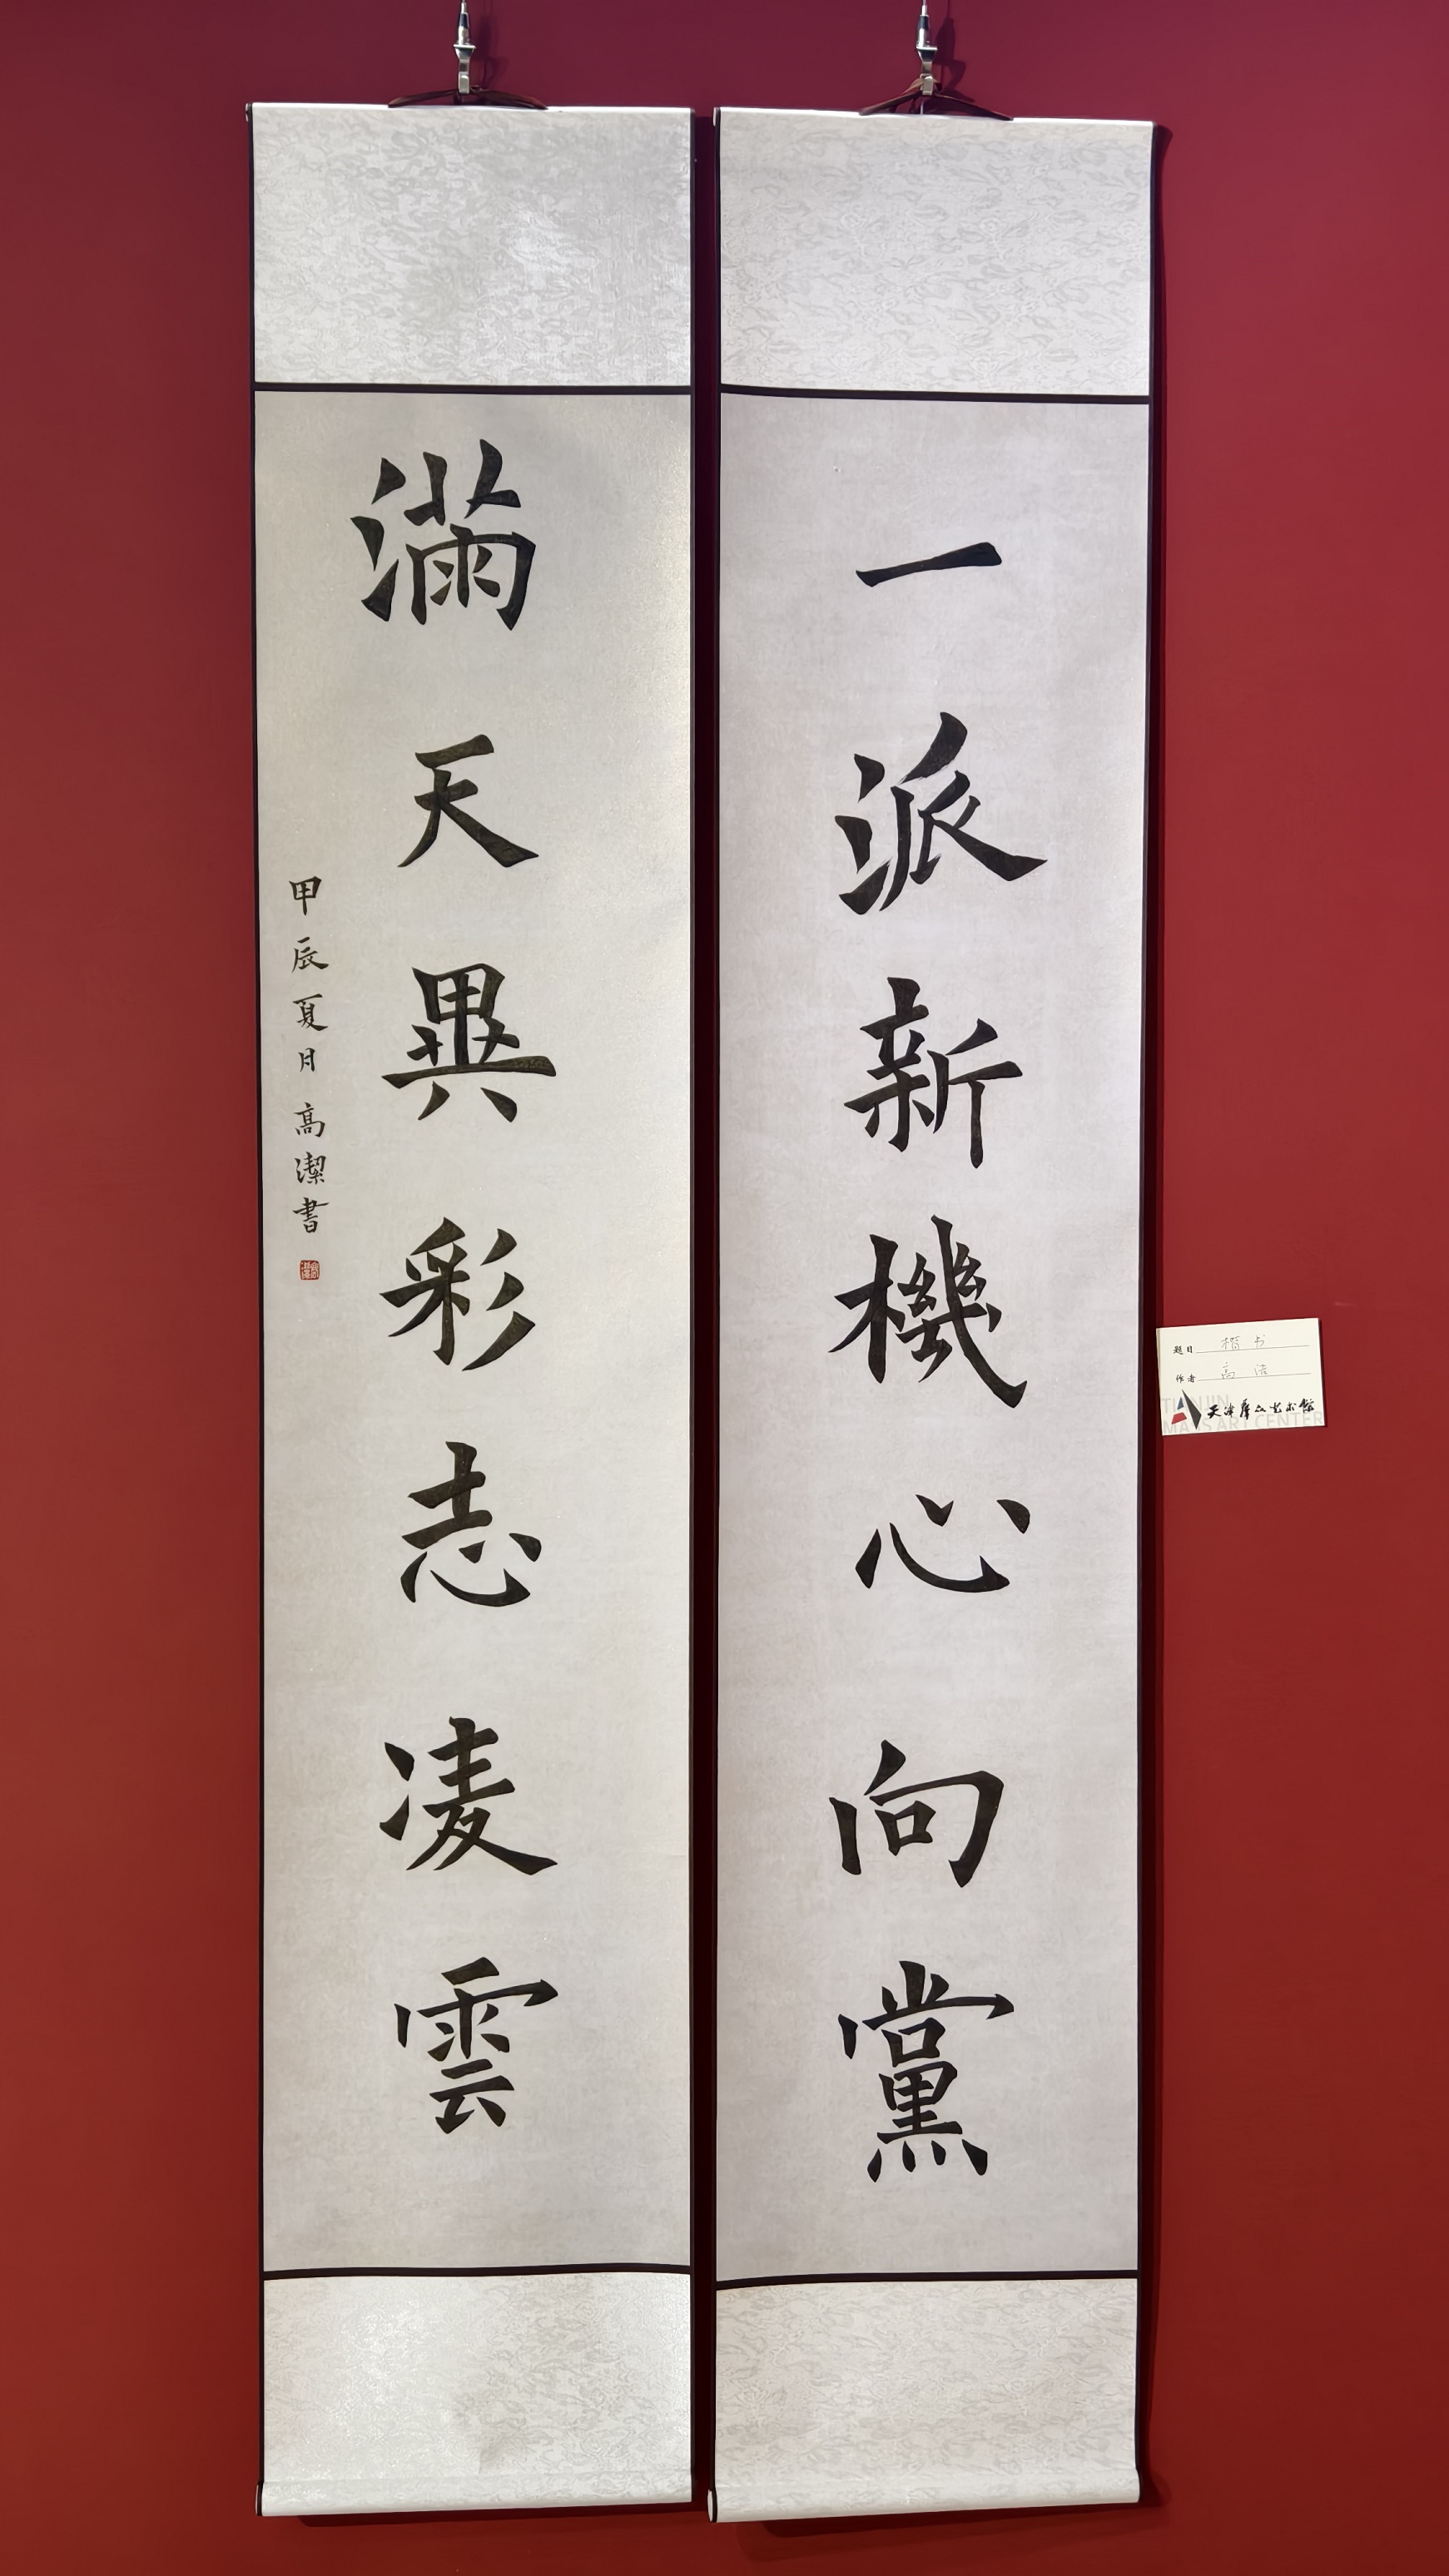 一派新機心向黨
滿天異彩志凌雲
甲辰夏月 高潔書
题目 楷书
作者 高洁
天津群众艺术馆
TIANJIN
MASS ART CENTER